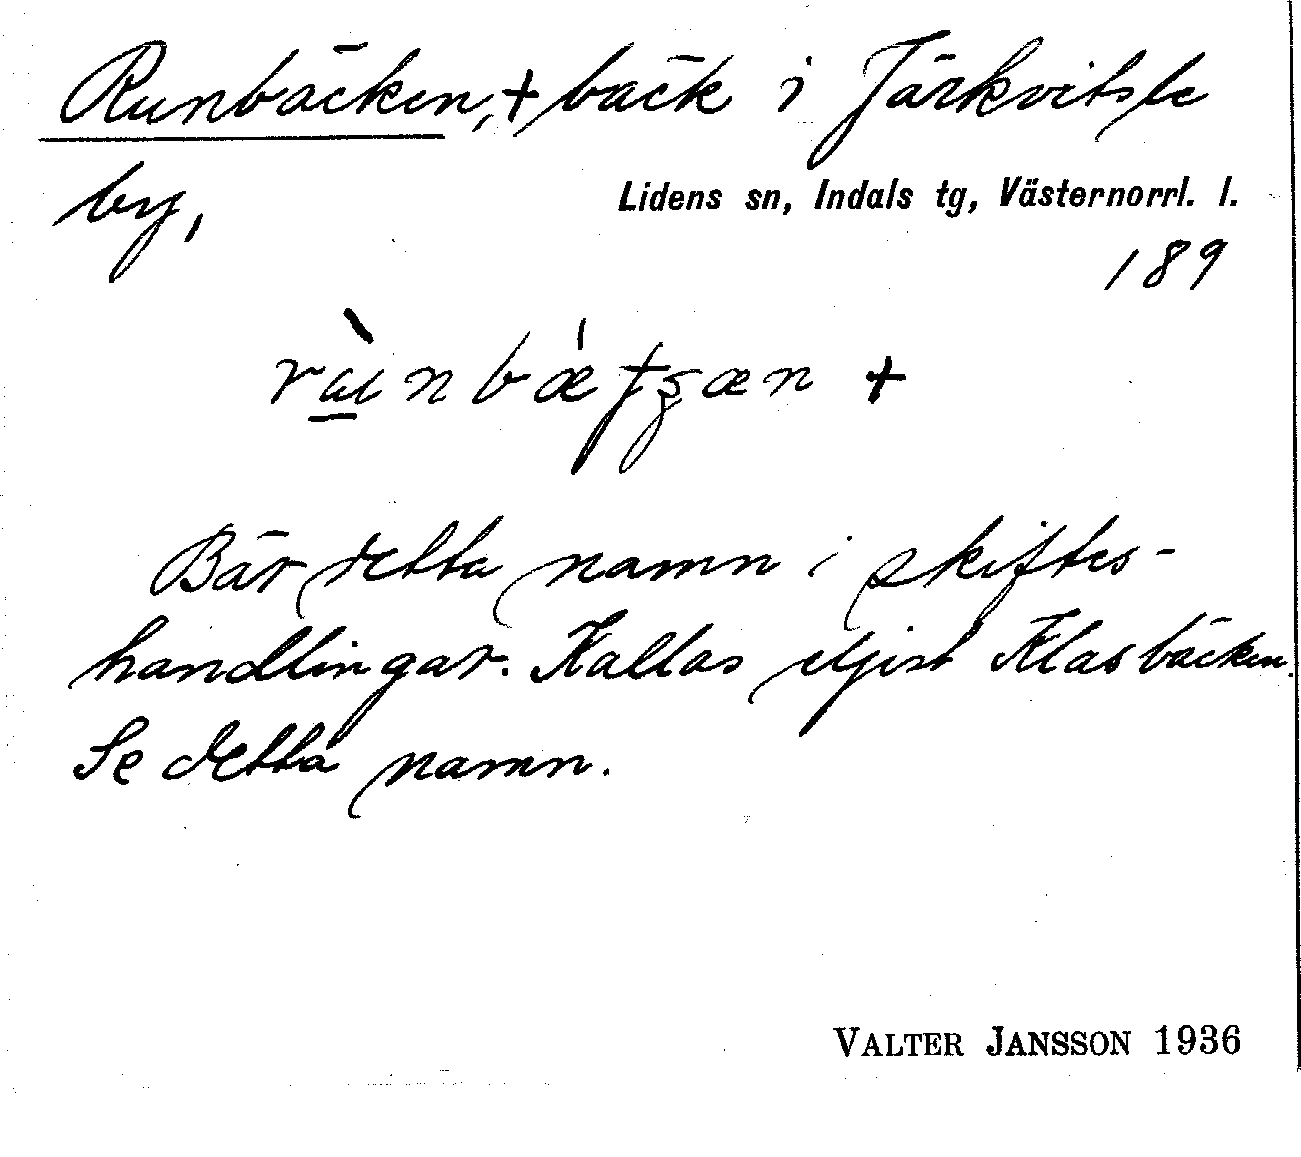 Runbäcken, + bäck i Järkvitsle
by,
Lidens sn, Indals tg, Västernorrl. l.
189
Bär detta namn i skiftes-
handlingar. Kallas eljest Klasbäcken.
Se detta namn.
VALTER JANSSON 1936